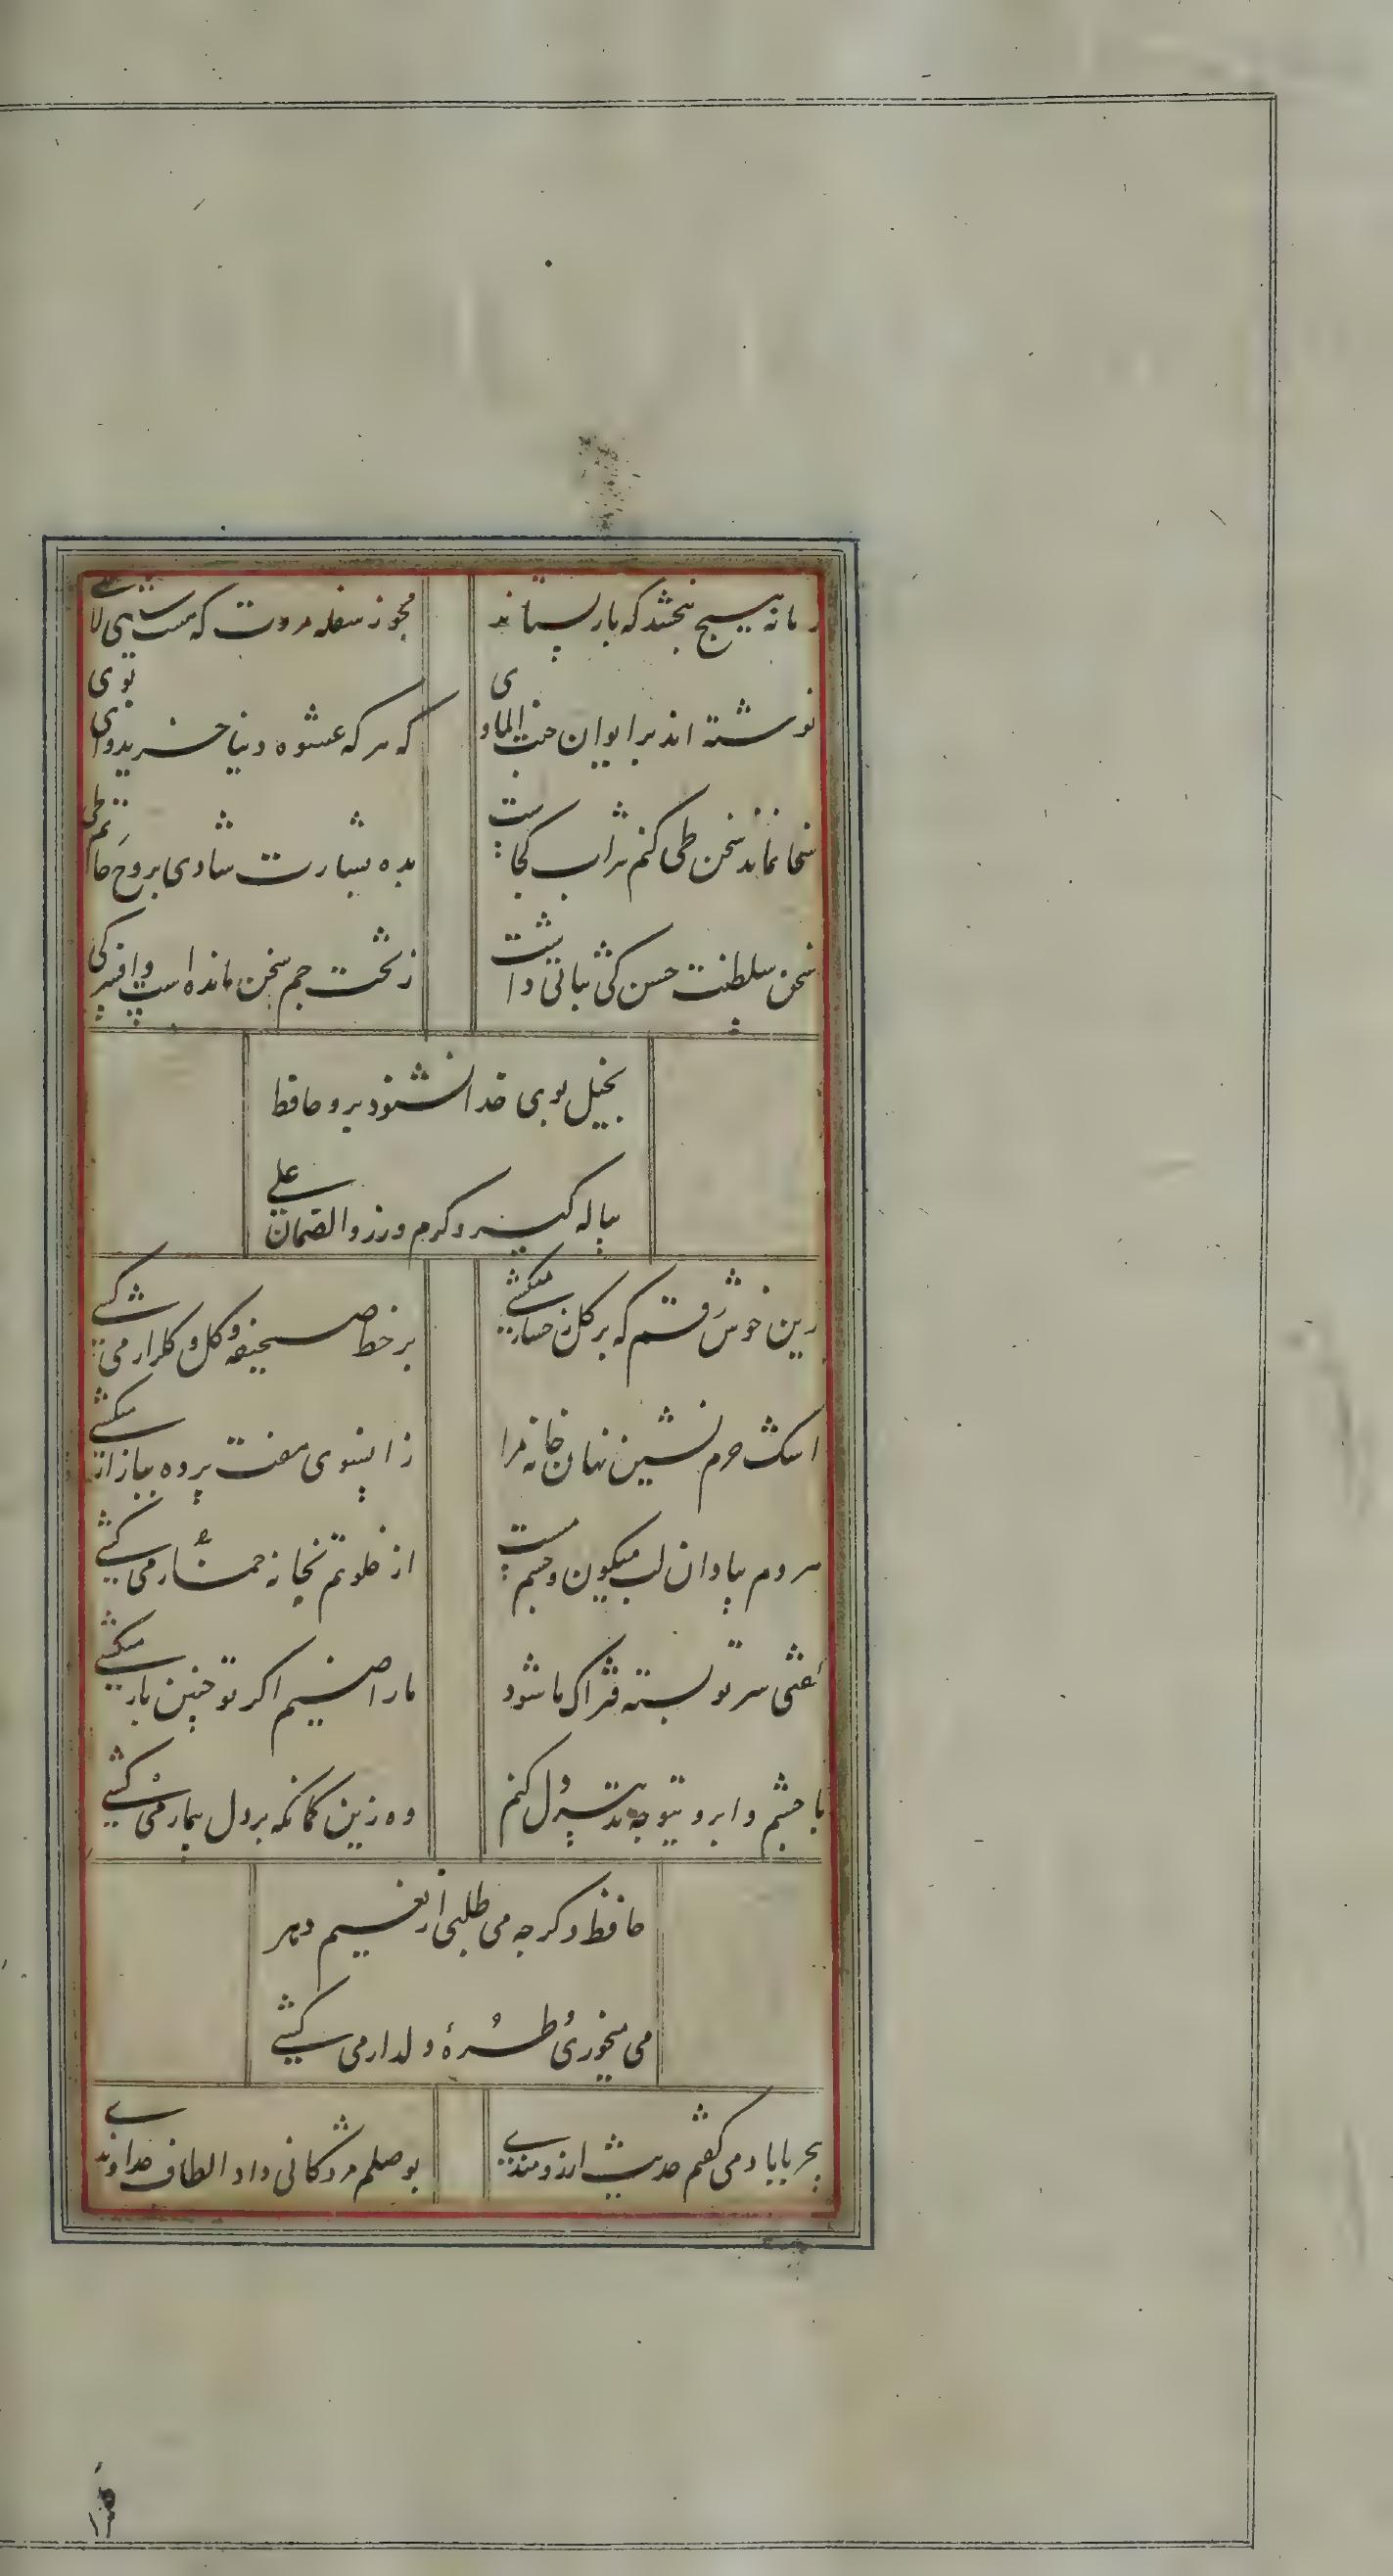 زمانه هیچ نبخشد که باز بستاند
مجوز سفله مروت که شیئی لاشی
نوشته اند بر ایوان جنت الماوی
که هر که عشوه دنیا خرید وای توی
سخا نماند سخن طی کنم شراب کجاست
بده بشارت شادی بروح حاتم طی
سخن سلطنت حسن کی ثباتی داشت
ز تخت جم سخن مانده است و افسر کی
بخیل بوی خدا نشنود برو حافظ
پیاله کیر و کرم ورز و الضمان علی
زین خوش رقم که بر کل رخسار میکشی
بر خط صحیفه و کل و کلزار می کشی
اشک حرم نشین نهان خانه مرا
زانسوی هفت پرده ببازار میکشی
هر دم بیاد ان لب میکون و چشم مست
از خلوتم بخانه خمار می کشی
کفتی سر تو بسته فتراک ما شود
ما راضییم اکر تو چنین بار میکشی
با چشم و ابروتیو چه تدبیر دل کنم
وه زین کمانکه بر دل بیمار می کشی
حافظ دکر چه می طلبی از نعیم دهر
می میخوری و طره دلدار می کشی
بحر بابا د می کفتم حدیث ارزومندی
بوصلم مژدکانی داد الطاف خداوندی